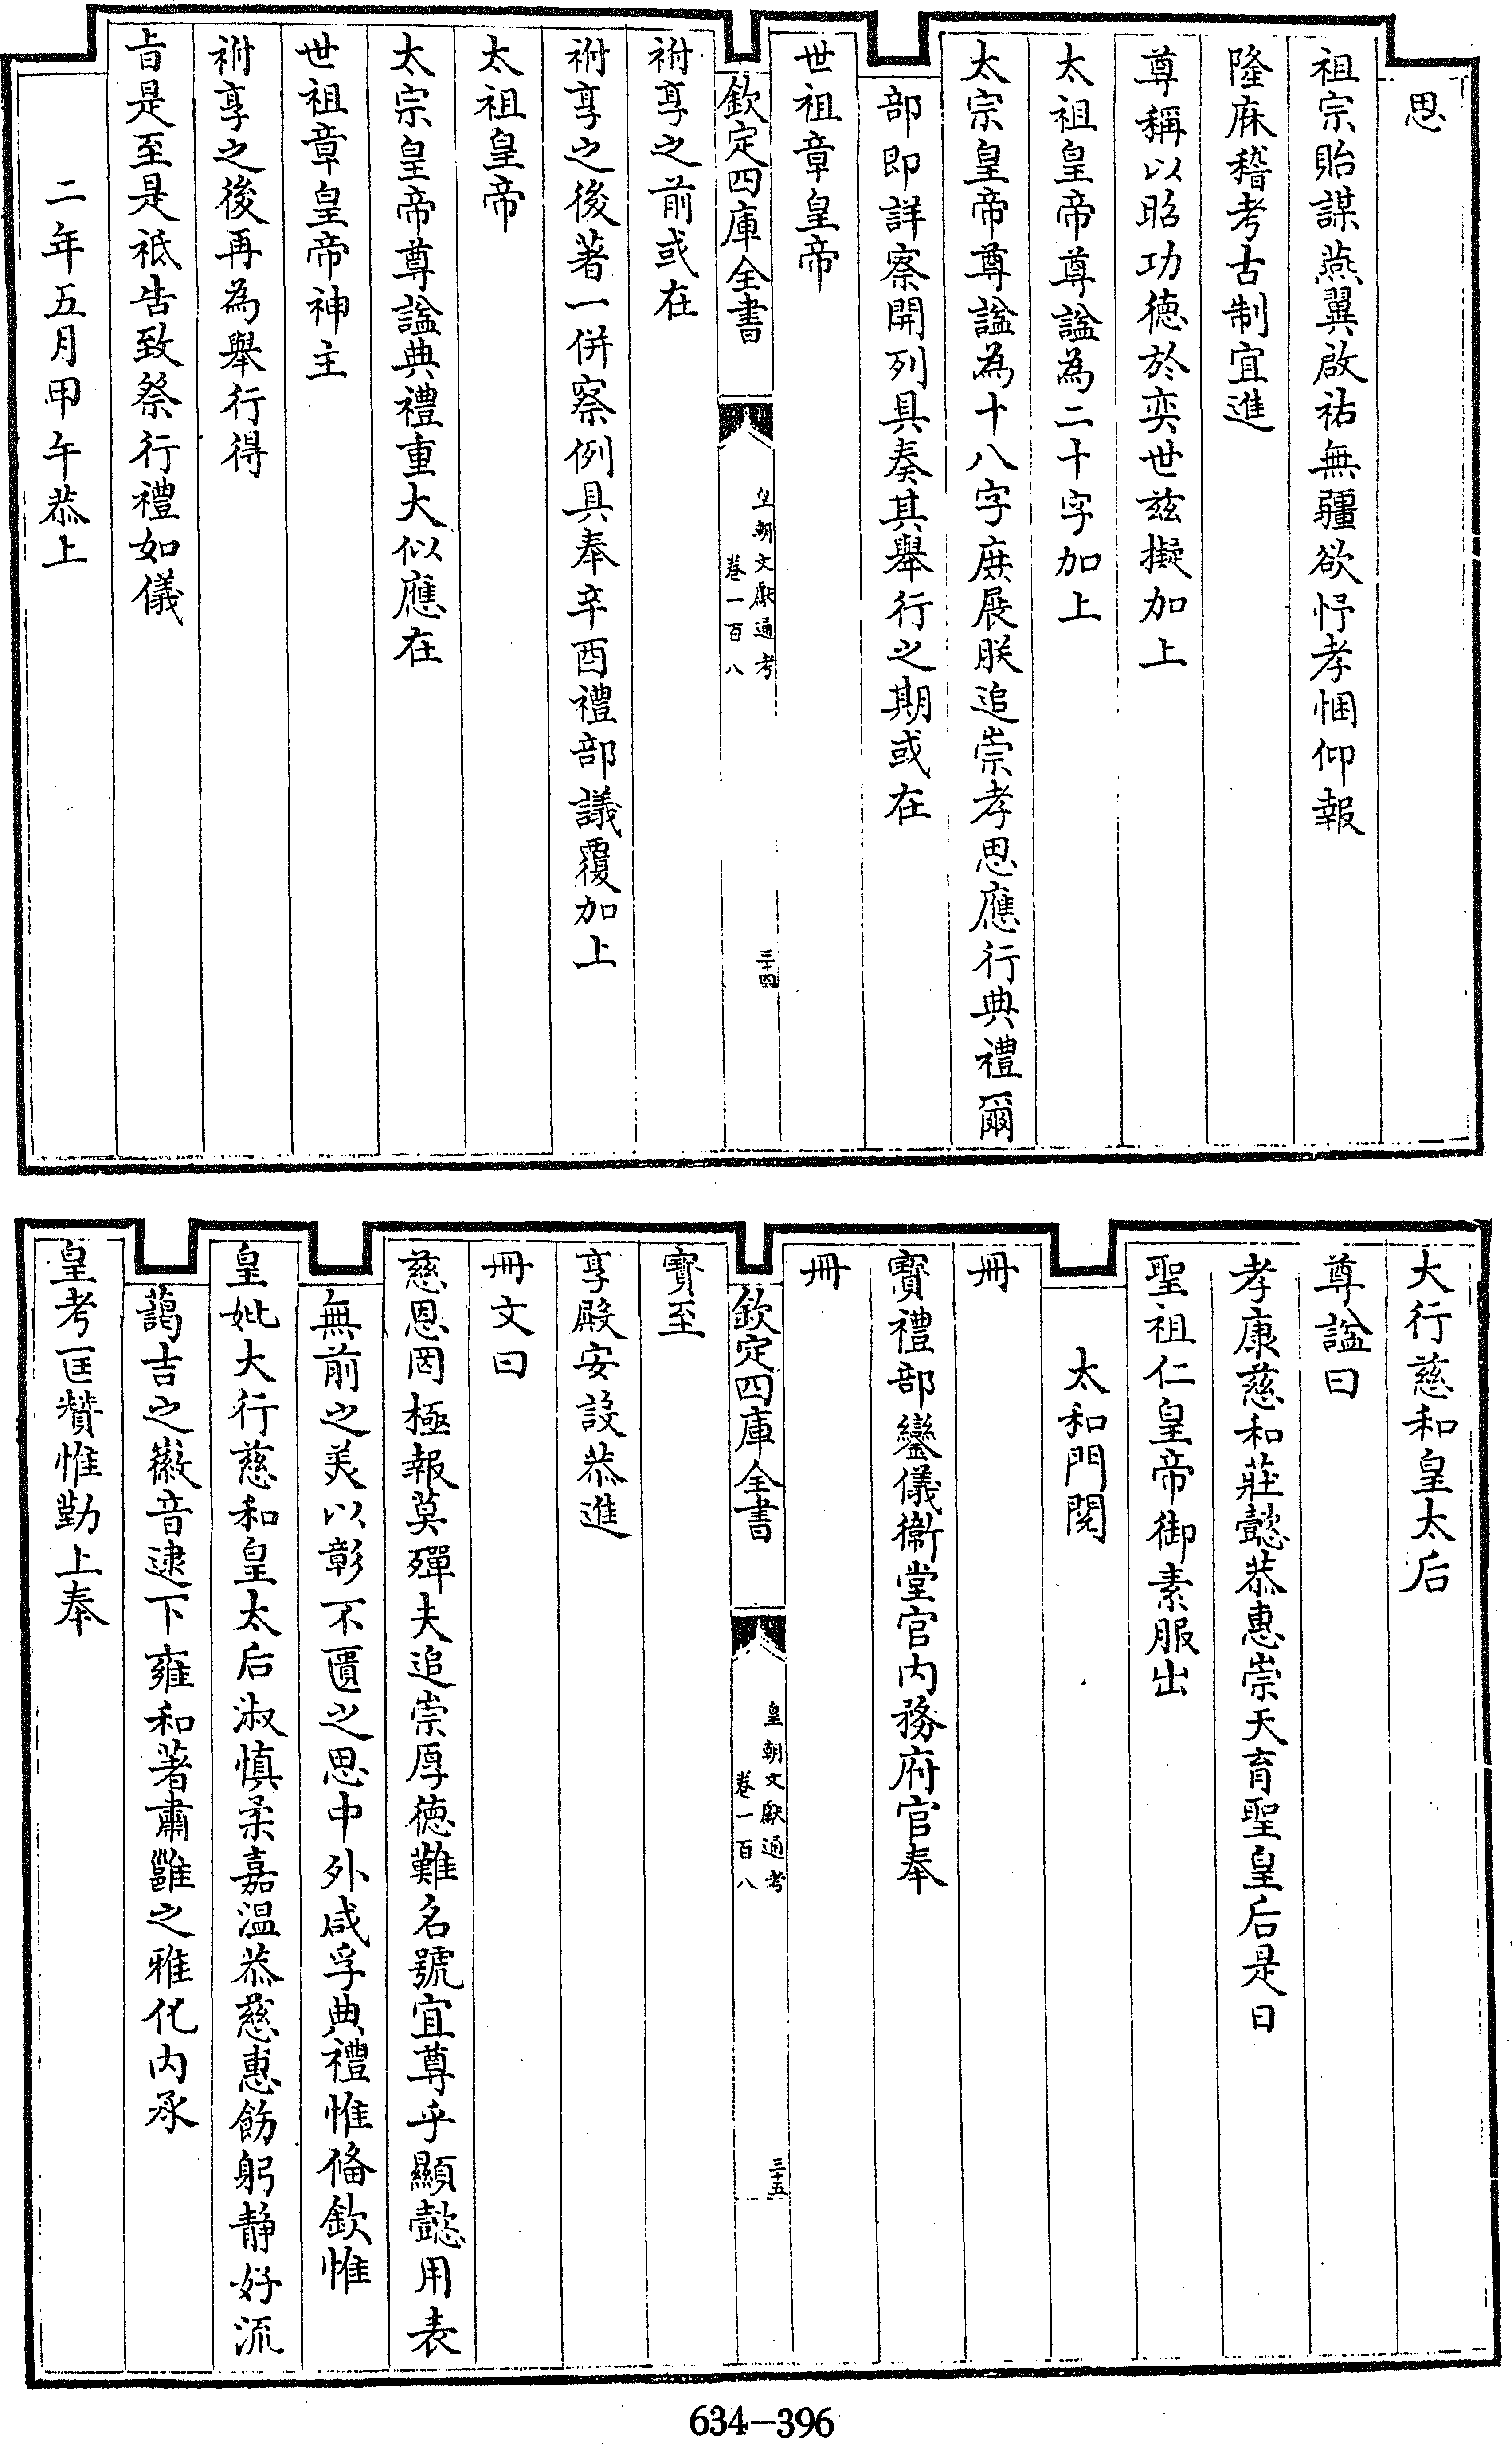 思
祖宗貽謀燕翼啟祐無疆欲抒孝悃仰報
隆庥稽考古制宜進
尊稱以昭功德於奕世茲擬加上
太祖皇帝尊諡為二十字加上
太宗皇帝尊諡為十八字庶展朕追崇孝思應行典禮爾
部即詳察開列具奏其舉行之期或在
世祖章皇帝
欽定四庫全書
皇朝文獻通考
卷一百八
三十四
祔享之前或在
祔享之後著一併察例具奉辛酉禮部議覆加上
太祖皇帝
太宗皇帝尊諡典禮重大似應在
世祖章皇帝神主
祔享之後再為舉行得
旨是至是祗告致祭行禮如儀
二年五月甲午恭上
大行慈和皇太后
尊諡曰
孝康慈和莊懿恭惠崇天育聖皇后是日
聖祖仁皇帝御素服出
太和門閱
冊
寶禮部鑾儀衞堂官內務府官奉
冊
欽定四庫全書
皇朝文獻通考
卷一百八
三十五
寶至
享殿安設恭進
冊文曰
慈恩罔極報莫殫夫追崇厚德難名號宜尊乎顯懿用表
無前之美以彰不匱之思中外咸孚典禮惟備欽惟
皇妣大行慈和皇太后淑慎柔嘉溫恭慈惠飭躬静好流
藹吉之徽音逮下雍和著肅雝之雅化內承
皇考匡贊惟勤上奉
634-396